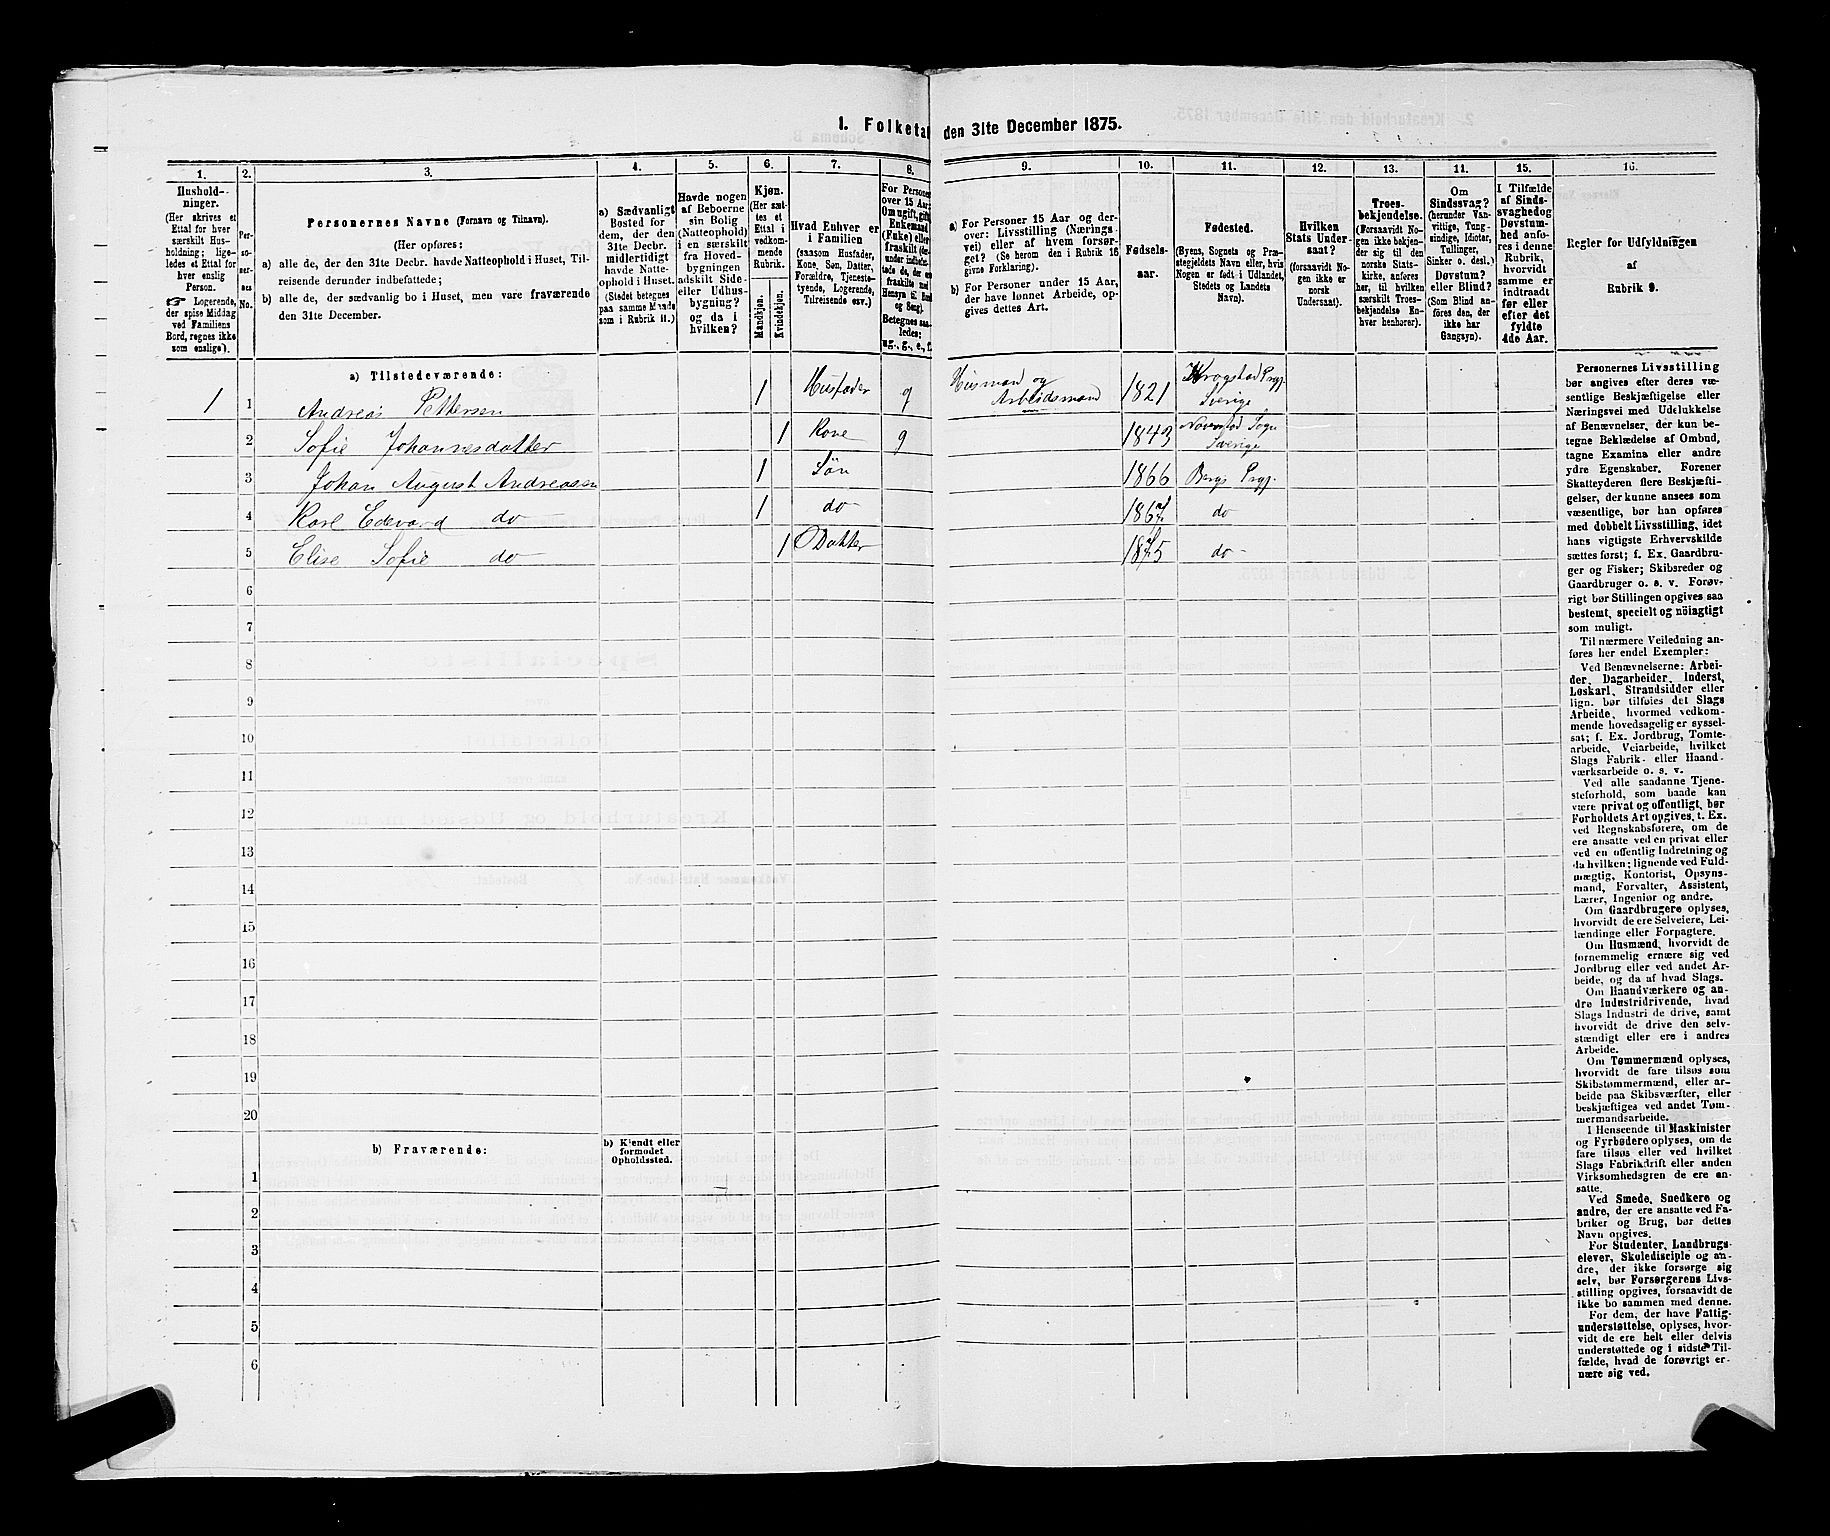 1. Folketal den 31te December 1875.
1.
Hushold-
ninger.
(Her skrives et
Ettal for hver
særskilt Hus-
holdning; lige-
ledes et Ettal for
hver enslig
Person.
☞ Logerende,
der spise Middag
ved Familiens
Bord, regnes ikke
som enslige).
2.
Per-
so-
ner-
nes
No.
3.
Personernes Navne (Fornavn og Tilnavn).
(Her opføres:
a) alle de, der den 31te Decbr. havde Natteophold i Huset, Til-
reisende derunder indbefattede;
b) alle de, der sædvanlig bo i Huset, men vare fraværende
den 31te December.
4.
a) Sædvanligt
Bosted for
dem, der den
31te Decbr.
midlertidigt
havde Natte-
ophold i Huset.
(Stedet betegnes
paa samme Maade
som i Rubrik 11.)
5.
Havde nogen
af Beboerne
sin Bolig
(Natteophold)
i en særskilt
fra Hoved-
bygningen
adskilt Side-
eller Udhus-
bygning?
og da i
hvilken?
6.
Kjøn.
(Her sæt-
tes et
Ettal i
vedkom-
mende
Rubrik.
Mandkjøn.
Kvindekjøn.
7.
Hvad Enhver er
i Familien
(saasom Husfader,
Kone, Søn, Datter,
Forældre, Tjeneste-
tyende, Logerende,
Tilreisende osv.)
8.
For Personer
over 15 Aar:
Om ugift, gift,
Enkemand
(Enke) eller
fraskilt
Betegnes saa-
ledes:
ug., g., e., f.
9.
a) For Personer 15 Aar og der-
over: Livsstilling (Nærings-
vei) eller af hvem forsør-
get? (Se herom den i Rubrik 16
givne Forklaring).
b) For Personer under 15 Aar,
der have lønnet Arbeide, op-
gives dettes Art.
10.
Fødsels-
aar.
11.
Fødested.
(Byens, Sognets og Præ-
stegjeldets Navn eller, hvis
Nogen er født i Udlandet,
Stedets og Landets
Navn).
12.
Hvilken
Stats Under-
saat?
(forsaavidt No-
gen ikke er
norsk
Undersaat).
13.
Troes-
bekjendelse.
(Forsaavidt No-
gen ikke bekjen-
der sig til den
norske Stats-
kirke, anføres
her, til hvilken
særskilt Troes-
bekjendelse En-
hver henhører).
14.
Om
Sindssvag?
(herunder Van-
vittige, Tung-
sindige, Idioter,
Tullinger,
Sinker o. desl.)
Døvstum?
eller Blind?
(Som Blind an-
føres den, der
ikke har
Gangsyn).
15.
I Tilfælde
af Sinds-
svaghed og
Døvstum-
hed anfø-
res i denne
Rubrik,
hvorvidt
samme er
indtraadt
før eller
efter det
fyldte
4de Aar.
16.
Regler for Udfyldningen
af
Rubrik 9.
a) Tilstedeværende:
1 1 Andreas Pettersen 1 Husfader g Husmand og Arbeidsmand 1821 Krogstad Prgj. Sverige
2 Sofie Johannesdatter 1 Kone g 1843 Sogn Sverige
3 Johan August Andreasen 1 Søn 1866 Bergs Prgj.
4 Karl Edevard do 1 do 1867 do
5 Elise Sofie do 1 Datter 1875 do
6
7
8
9
10
11
12
13
14
15
16
17
18
19
20
b) Fraværende:
b) Kjendt eller
formodet
Opholdssted.
1
2
3
4
5
6
Personernes Livsstilling
bør angives efter deres væ-
sentlige Beskjæftigelse eller
Næringsvei med Udelukkelse
af Benævnelser, der kun be-
tegne Beklædelse af Ombud,
tagne Examina eller andre
ydre Egenskaber. Forener
Skatteyderen flere Beskjæfti-
gelser, der kunne ansees som
væsentlige, bør han opføres
med dobbelt Livsstilling, idet
hans vigtigste Erhvervskilde
sættes først; f. Ex. Gaardbru-
ger og Fisker; Skibsreder og
Gaardbruger o. s. v. Forøv-
rigt bør Stillingen opgives saa
bestemt, specielt og nøiagtigt
som muligt.
Til nærmere Veiledning an-
føres her endel Exempler:
Ved Benævnelserne: Arbei-
der, Dagarbeider, Inderst,
Løskarl, Strandsidder eller
lign. bør tilføies det Slags
Arbeide, hvormed vedkom-
mende hovedsagelig er syssel-
sat; f. Ex. Jordbrug, Tomte-
arbeide, Veiarbeide, hvilket
Slags Fabrik- eller Haand-
værksarbeide o. s. v.
Ved alle saadanne Tjene-
steforhold, som baade kan
være privat og offentligt, bør
Forholdets Art opgives, t. Ex.
ved Regnskabsførere, om de
ere ansatte ved en privat eller
ved en offentlig Indretning og
da hvilken; lignende ved Fuld-
mægtig, Kontorist, Opsyns-
mand, Forvalter, Assistent,
Lærer, Ingeniør og andre.
Om Gaardbrugere oplyses,
hvorvidt de ere Selveiere, Lei-
lændinge eller Forpagtere.
Om Husmænd, hvorvidt de
fornemmelig ernære sig ved
Jordbrug eller ved andet Ar-
beide, og da af hvad Slags.
Om Haandværkere og an-
dre Industridrivende, hvad
Slags Industri de drive, samt
hvorvidt de drive den selv-
stændigt eller ere i andres
Arbeide.
Om Tømmermænd oplyses,
hvorvidt de fare tilsøs som
Skibstømmermænd, eller ar-
beide paa Skibsværfter, eller
beskjæftiges ved andet Tøm-
mermandsarbeide.
I Henseende til Maskinister
og Fyrbødere oplyses, om de
fare tilsøs eller ved hvilket
Slags Fabrikdrift eller anden
Virksomhedsgren de ere an-
satte.
Ved Smede, Snedkere og
andre, der ere ansatte ved Fa-
briker og Brug, bør dettes
Navn opgives.
For Studenter, Landbrugs-
elever, Skoledisciple og an-
dre, der ikke forsørge sig
selv, bør Forsørgerens Livs-
stilling opgives, forsaavidt de
ikke bo sammen med denne.
For dem, der have Fattig-
understøttelse, oplyses, hvor-
vidt de ere helt eller delvis
understøttede og i sidste Til-
fælde, hvad de forøvrigt er-
nære sig ved.